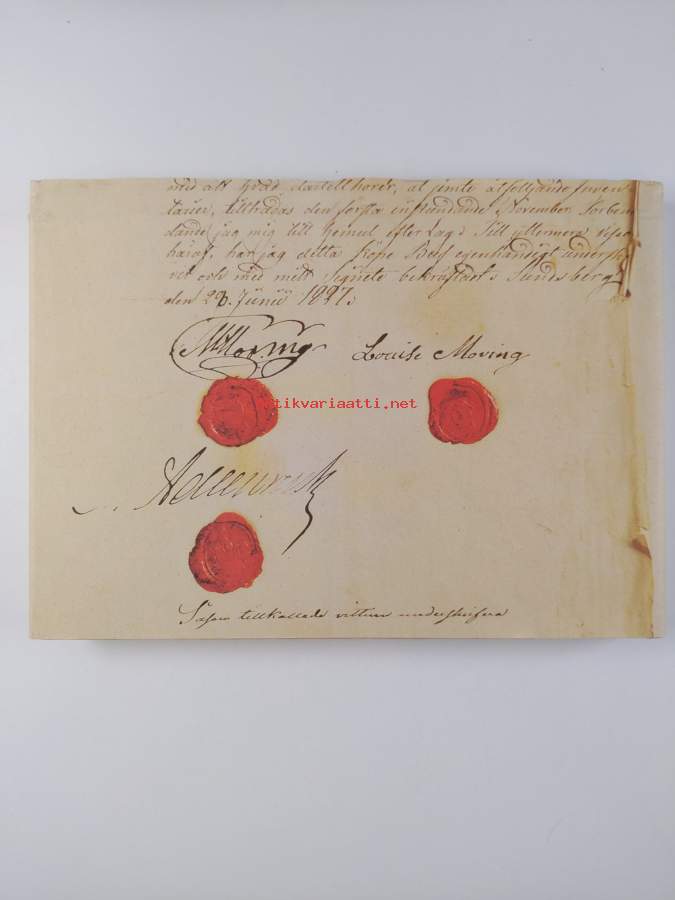 med alt hvad dertill hörer, at jemte åtföljande Inven-
tarier, tillträdas den första instundande November. Förbin-
dande jag mig till hemul efter Lag. Till yttermera visso
häraf, har jag detta Köpe Bref egenhändigt underskri-
vit och med mitt Signete bekräftat. Sundsberg
den 28 Junii 1827.
Moving Louise Moving
tikvariaatti.net
Såsom tillkallade vittnen underskrifva